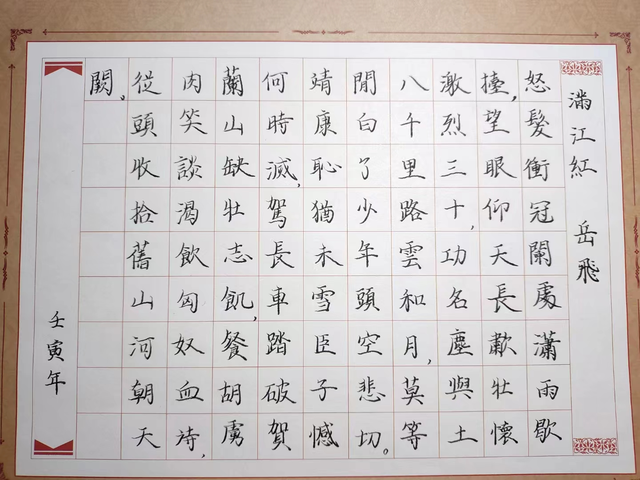 滿江紅 岳飛
怒髮衝冠闌處瀟雨歇
擡,望眼仰天長歗壯懷
激烈三十,功名塵與土
八千里路雲和月,莫等
閒白了少年頭空悲切。
靖康恥猶未雪臣子憾
何時滅,駕長車踏破賀
蘭山缺壯志飢,餐胡虜
肉笑談渴飲匈奴血待,
從頭收拾舊山河朝天
闕。
壬寅年